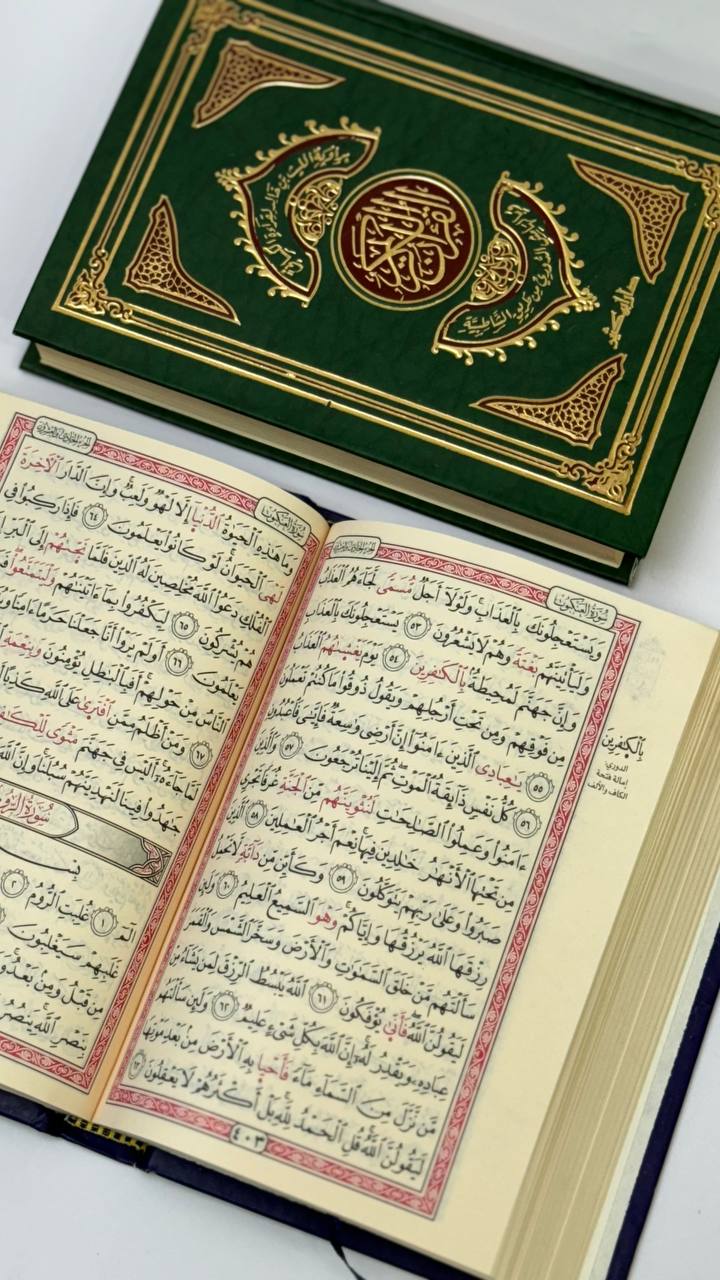 القرآن الكريم
برواية الليث بن خالد لقراءة الكسائي
الدوري من طريق الشاطبية
سُورَةُ العَنكَبُوتِ
الجزء الحادي والعشرون
وَيَسْتَعْجِلُونَكَ بِالْعَذَابِ وَلَوْلَا أَجَلٌ مُسَمًّى لَجَاءَهُمُ الْعَذَابُ
وَلَيَأْتِيَنَّهُم بَغْتَةً وَهُمْ لَا يَشْعُرُونَ ٥٣ يَسْتَعْجِلُونَكَ بِالْعَذَابِ
وَإِنَّ جَهَنَّمَ لَمُحِيطَةٌ بِالْكَٰفِرِينَ ٥٤ يَوْمَ يَغْشَىٰهُمُ الْعَذَابُ
مِن فَوْقِهِمْ وَمِن تَحْتِ أَرْجُلِهِمْ وَيَقُولُ ذُوقُوا مَا كُنتُمْ تَعْمَلُونَ
٥٥ يَٰعِبَادِى الَّذِينَ ءَامَنُوا إِنَّ أَرْضِى وَٰسِعَةٌ فَإِيَّٰىَ فَاعْبُدُونِ
٥٦ كُلُّ نَفْسٍ ذَائِقَةُ الْمَوْتِ ثُمَّ إِلَيْنَا تُرْجَعُونَ ٥٧ وَالَّذِينَ
ءَامَنُوا وَعَمِلُوا الصَّٰلِحَٰتِ لَنُثْوِيَنَّهُم مِّنَ الْجَنَّةِ غُرَفًا تَجْرِى
مِن تَحْتِهَا الْأَنْهَٰرُ خَٰلِدِينَ فِيهَا نِعْمَ أَجْرُ الْعَٰمِلِينَ ٥٨ الَّذِينَ
صَبَرُوا وَعَلَىٰ رَبِّهِمْ يَتَوَكَّلُونَ ٥٩ وَكَأَيِّن مِّن دَابَّةٍ لَّا تَحْمِلُ
رِزْقَهَا اللَّهُ يَرْزُقُهَا وَإِيَّاكُمْ وَهْوَ السَّمِيعُ الْعَلِيمُ ٦٠ وَلَئِن
سَأَلْتَهُم مَّنْ خَلَقَ السَّمَٰوَٰتِ وَالْأَرْضَ وَسَخَّرَ الشَّمْسَ وَالْقَمَرَ
لَيَقُولُنَّ اللَّهُ فَأَنَّىٰ يُؤْفَكُونَ ٦١ اللَّهُ يَبْسُطُ الرِّزْقَ لِمَن يَشَاءُ مِنْ
عِبَادِهِ وَيَقْدِرُ لَهُ إِنَّ اللَّهَ بِكُلِّ شَىْءٍ عَلِيمٌ ٦٢ وَلَئِن سَأَلْتَهُم
مَّن نَّزَّلَ مِنَ السَّمَاءِ مَاءً فَأَحْيَا بِهِ الْأَرْضَ مِن بَعْدِ مَوْتِهَا
لَيَقُولُنَّ اللَّهُ قُلِ الْحَمْدُ لِلَّهِ بَلْ أَكْثَرُهُمْ لَا يَعْقِلُونَ ٦٣
٤٠٣
بِالْكَٰفِرِينَ
الدوري:
إمالة فتحة
الكاف والألف
سُورَةُ العَنكَبُوتِ
الجزء الحادي والعشرون
وَمَا هَٰذِهِ الْحَيَوٰةُ الدُّنْيَا إِلَّا لَهْوٌ وَلَعِبٌ وَإِنَّ الدَّارَ الْأَخِرَةَ
لَهْىَ الْحَيَوَانُ لَوْ كَانُوا يَعْلَمُونَ ٦٤ فَإِذَا رَكِبُوا فِى
الْفُلْكِ دَعَوُا اللَّهَ مُخْلِصِينَ لَهُ الدِّينَ فَلَمَّا نَجَّىٰهُمْ إِلَى الْبَرِّ إِذَا
هُمْ يُشْرِكُونَ ٦٥ لِيَكْفُرُوا بِمَا ءَاتَيْنَٰهُمْ وَلْيَتَمَتَّعُوا
يَعْلَمُونَ ٦٦ أَوَلَمْ يَرَوْا أَنَّا جَعَلْنَا حَرَمًا ءَامِنًا
النَّاسُ مِنْ حَوْلِهِمْ أَفَبِالْبَٰطِلِ يُؤْمِنُونَ وَبِنِعْمَةِ
٦٧ وَمَنْ أَظْلَمُ مِمَّنِ افْتَرَىٰ عَلَى اللَّهِ كَذِبًا
لَمَّا جَاءَهُ أَلَيْسَ فِى جَهَنَّمَ مَثْوًى لِّلْكَٰفِرِينَ
جَٰهَدُوا فِينَا لَنَهْدِيَنَّهُمْ سُبُلَنَا وَإِنَّ اللَّهَ
سُورَةُ الرُّومِ
بِسْمِ
الٓمٓ ١ غُلِبَتِ الرُّومُ ٢
غَلَبِهِمْ سَيَغْلِبُونَ
مِن قَبْلُ وَمِن بَعْدُ
بِنَصْرِ اللَّهِ يَنصُرُ